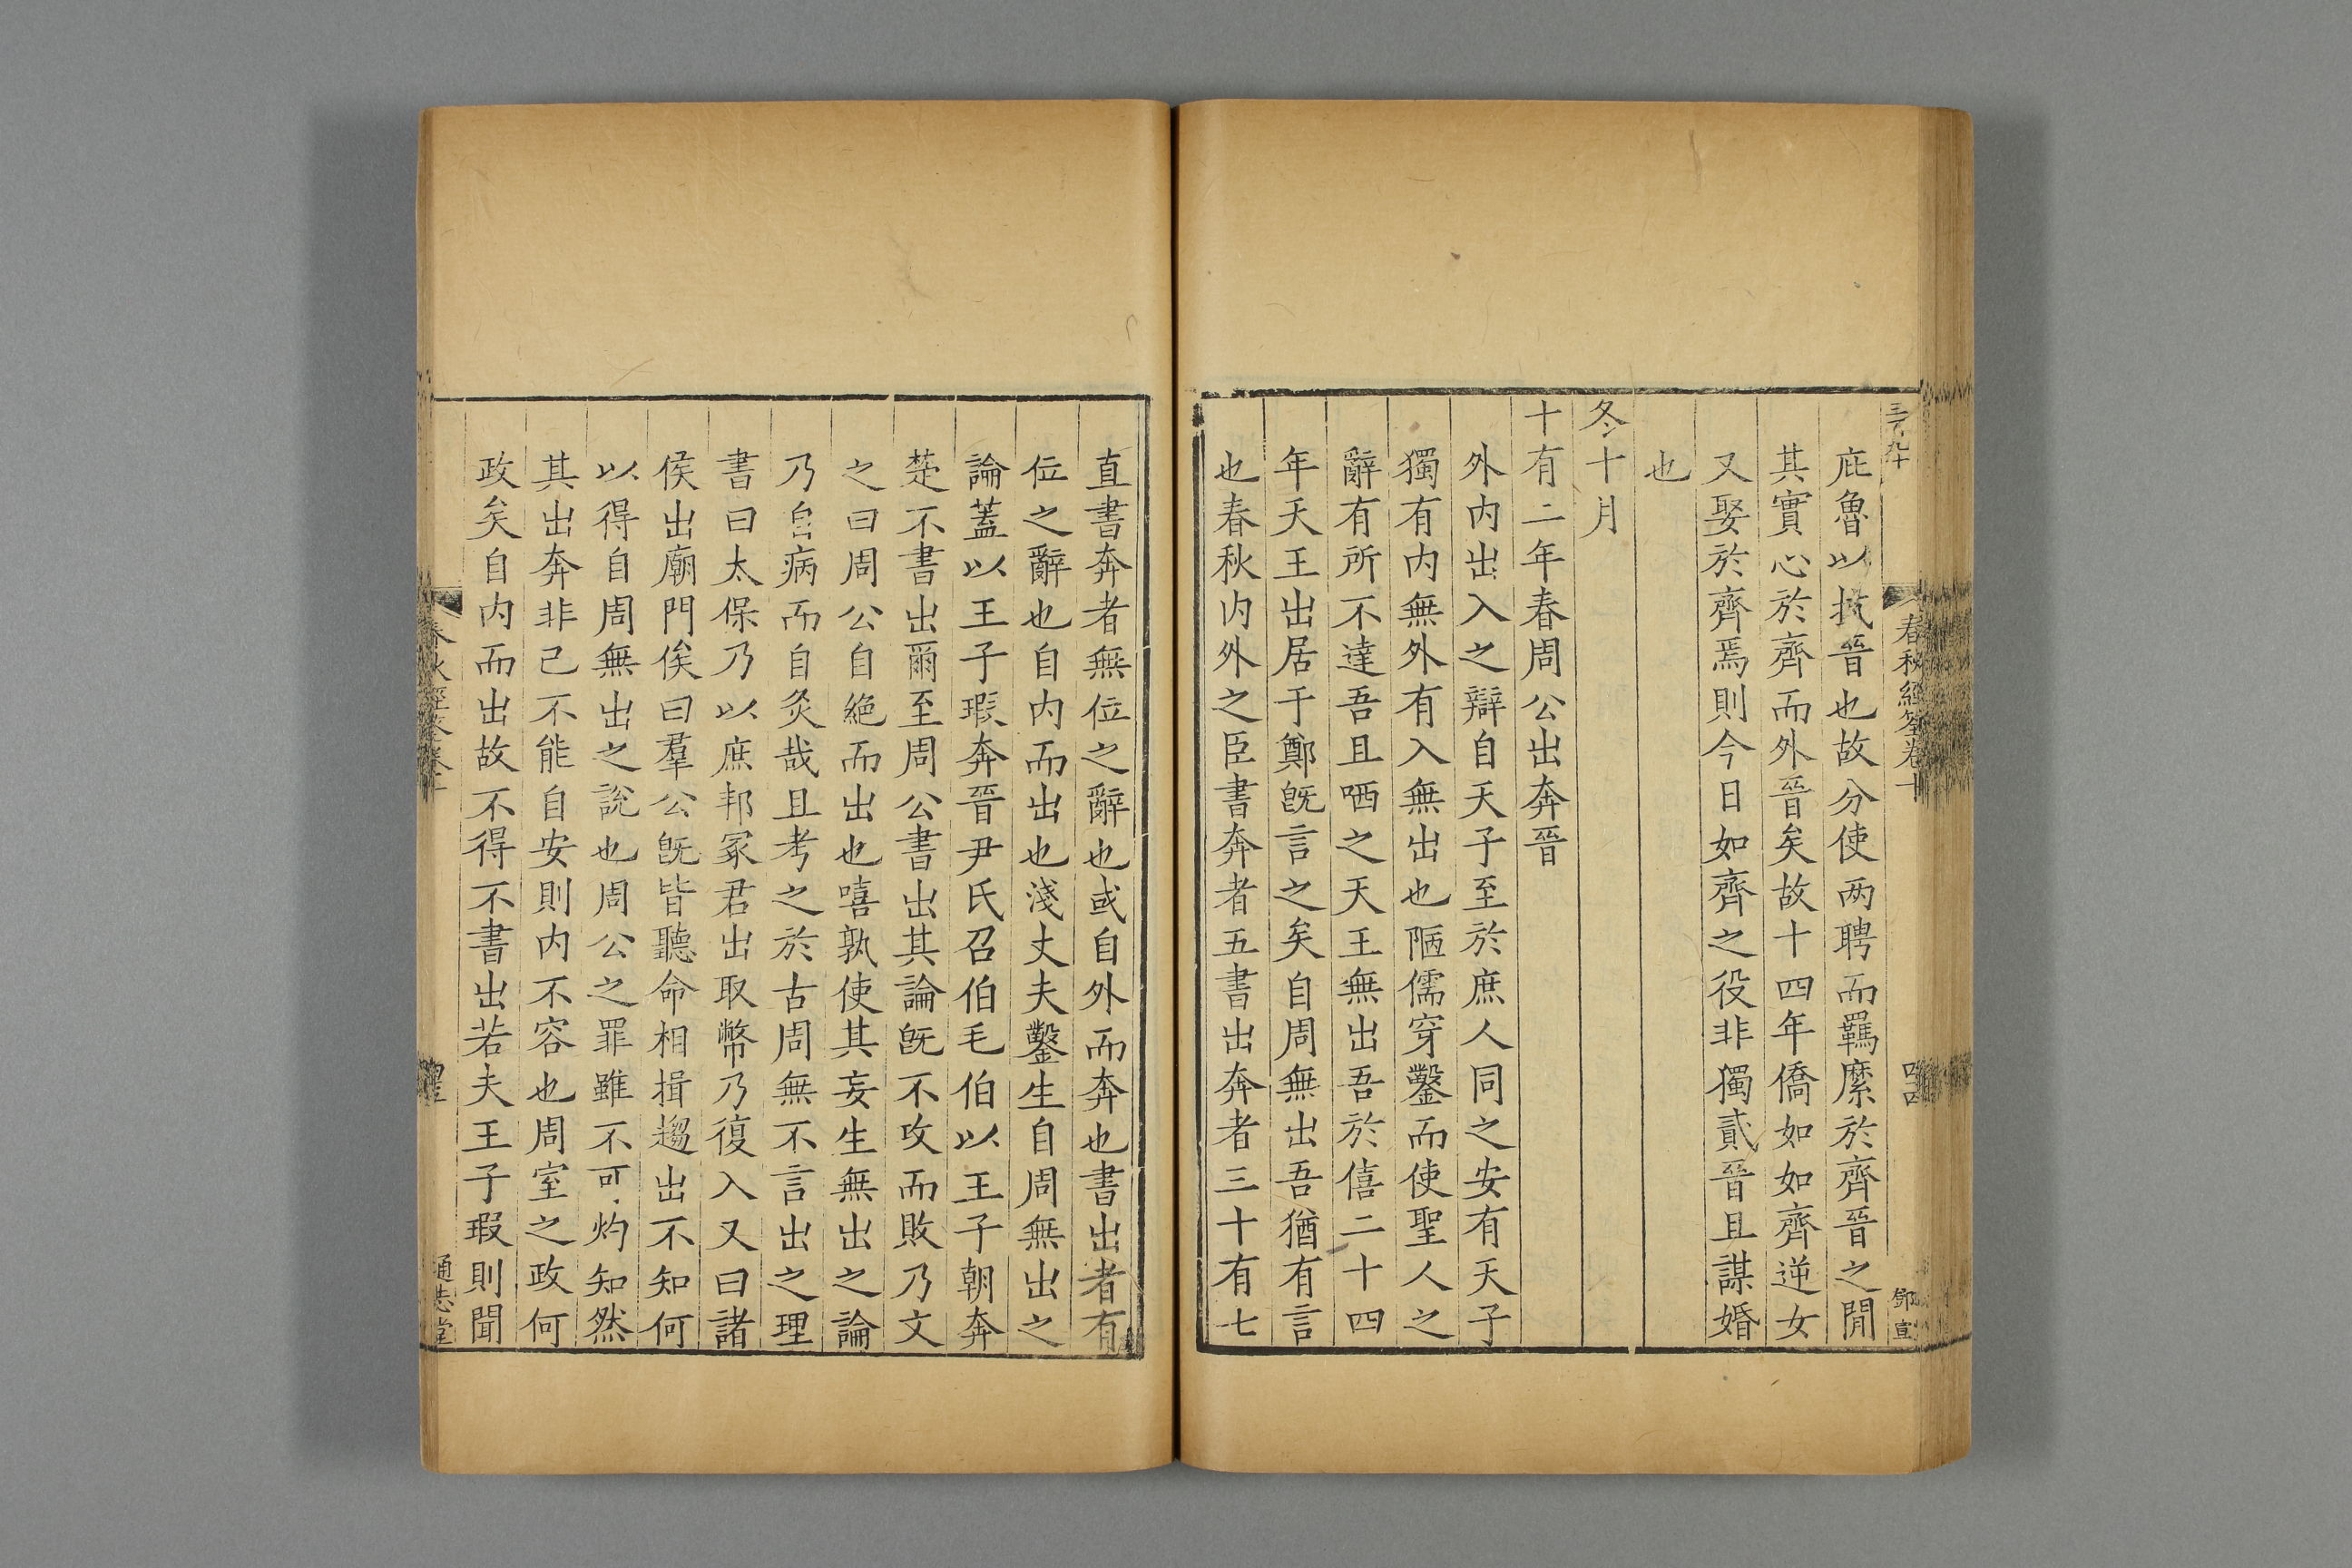 庇魯以抗晉也故分使两聘而羈縻於齊晉之閒
其實心於齊而外晉矣故十四年僑如如齊逆女
又娶於齊焉則今日如齊之役非獨貳晉且謀婚
也
冬十月
十有二年春周公出奔晉
外内出入之辯自天子至於庶人同之安有天子
獨有内無外有入無出也陋儒穿鑿而使聖人之
辭有所不達吾且哂之天王無出吾於僖二十四
年天王出居于鄭旣言之矣自周無出吾猶有言
也春秋内外之臣書奔者五書出奔者三十有七
春秋經筌卷十
鄧宣
直書奔者無位之辭也或自外而奔也書出者有
位之辭也自内而出也淺丈夫鑿生自周無出之
論蓋以王子瑕奔晉尹氏召伯毛伯以王子朝奔
楚不書出爾至周公書出其論旣不攻而敗乃文
之曰周公自絶而出也嘻孰使其妄生無出之論
乃自病而自灸哉且考之於古周無不言出之理
書曰太保乃以庶邦冢君出取幣乃復入又曰諸
侯出廟門俟曰羣公旣皆聽命相揖趨出不知何
以得自周無出之說也周公之罪雖不可灼知然
其出奔非己不能自安則内不容也周室之政何
政矣自内而出故不得不書出若夫王子瑕則聞
通志堂